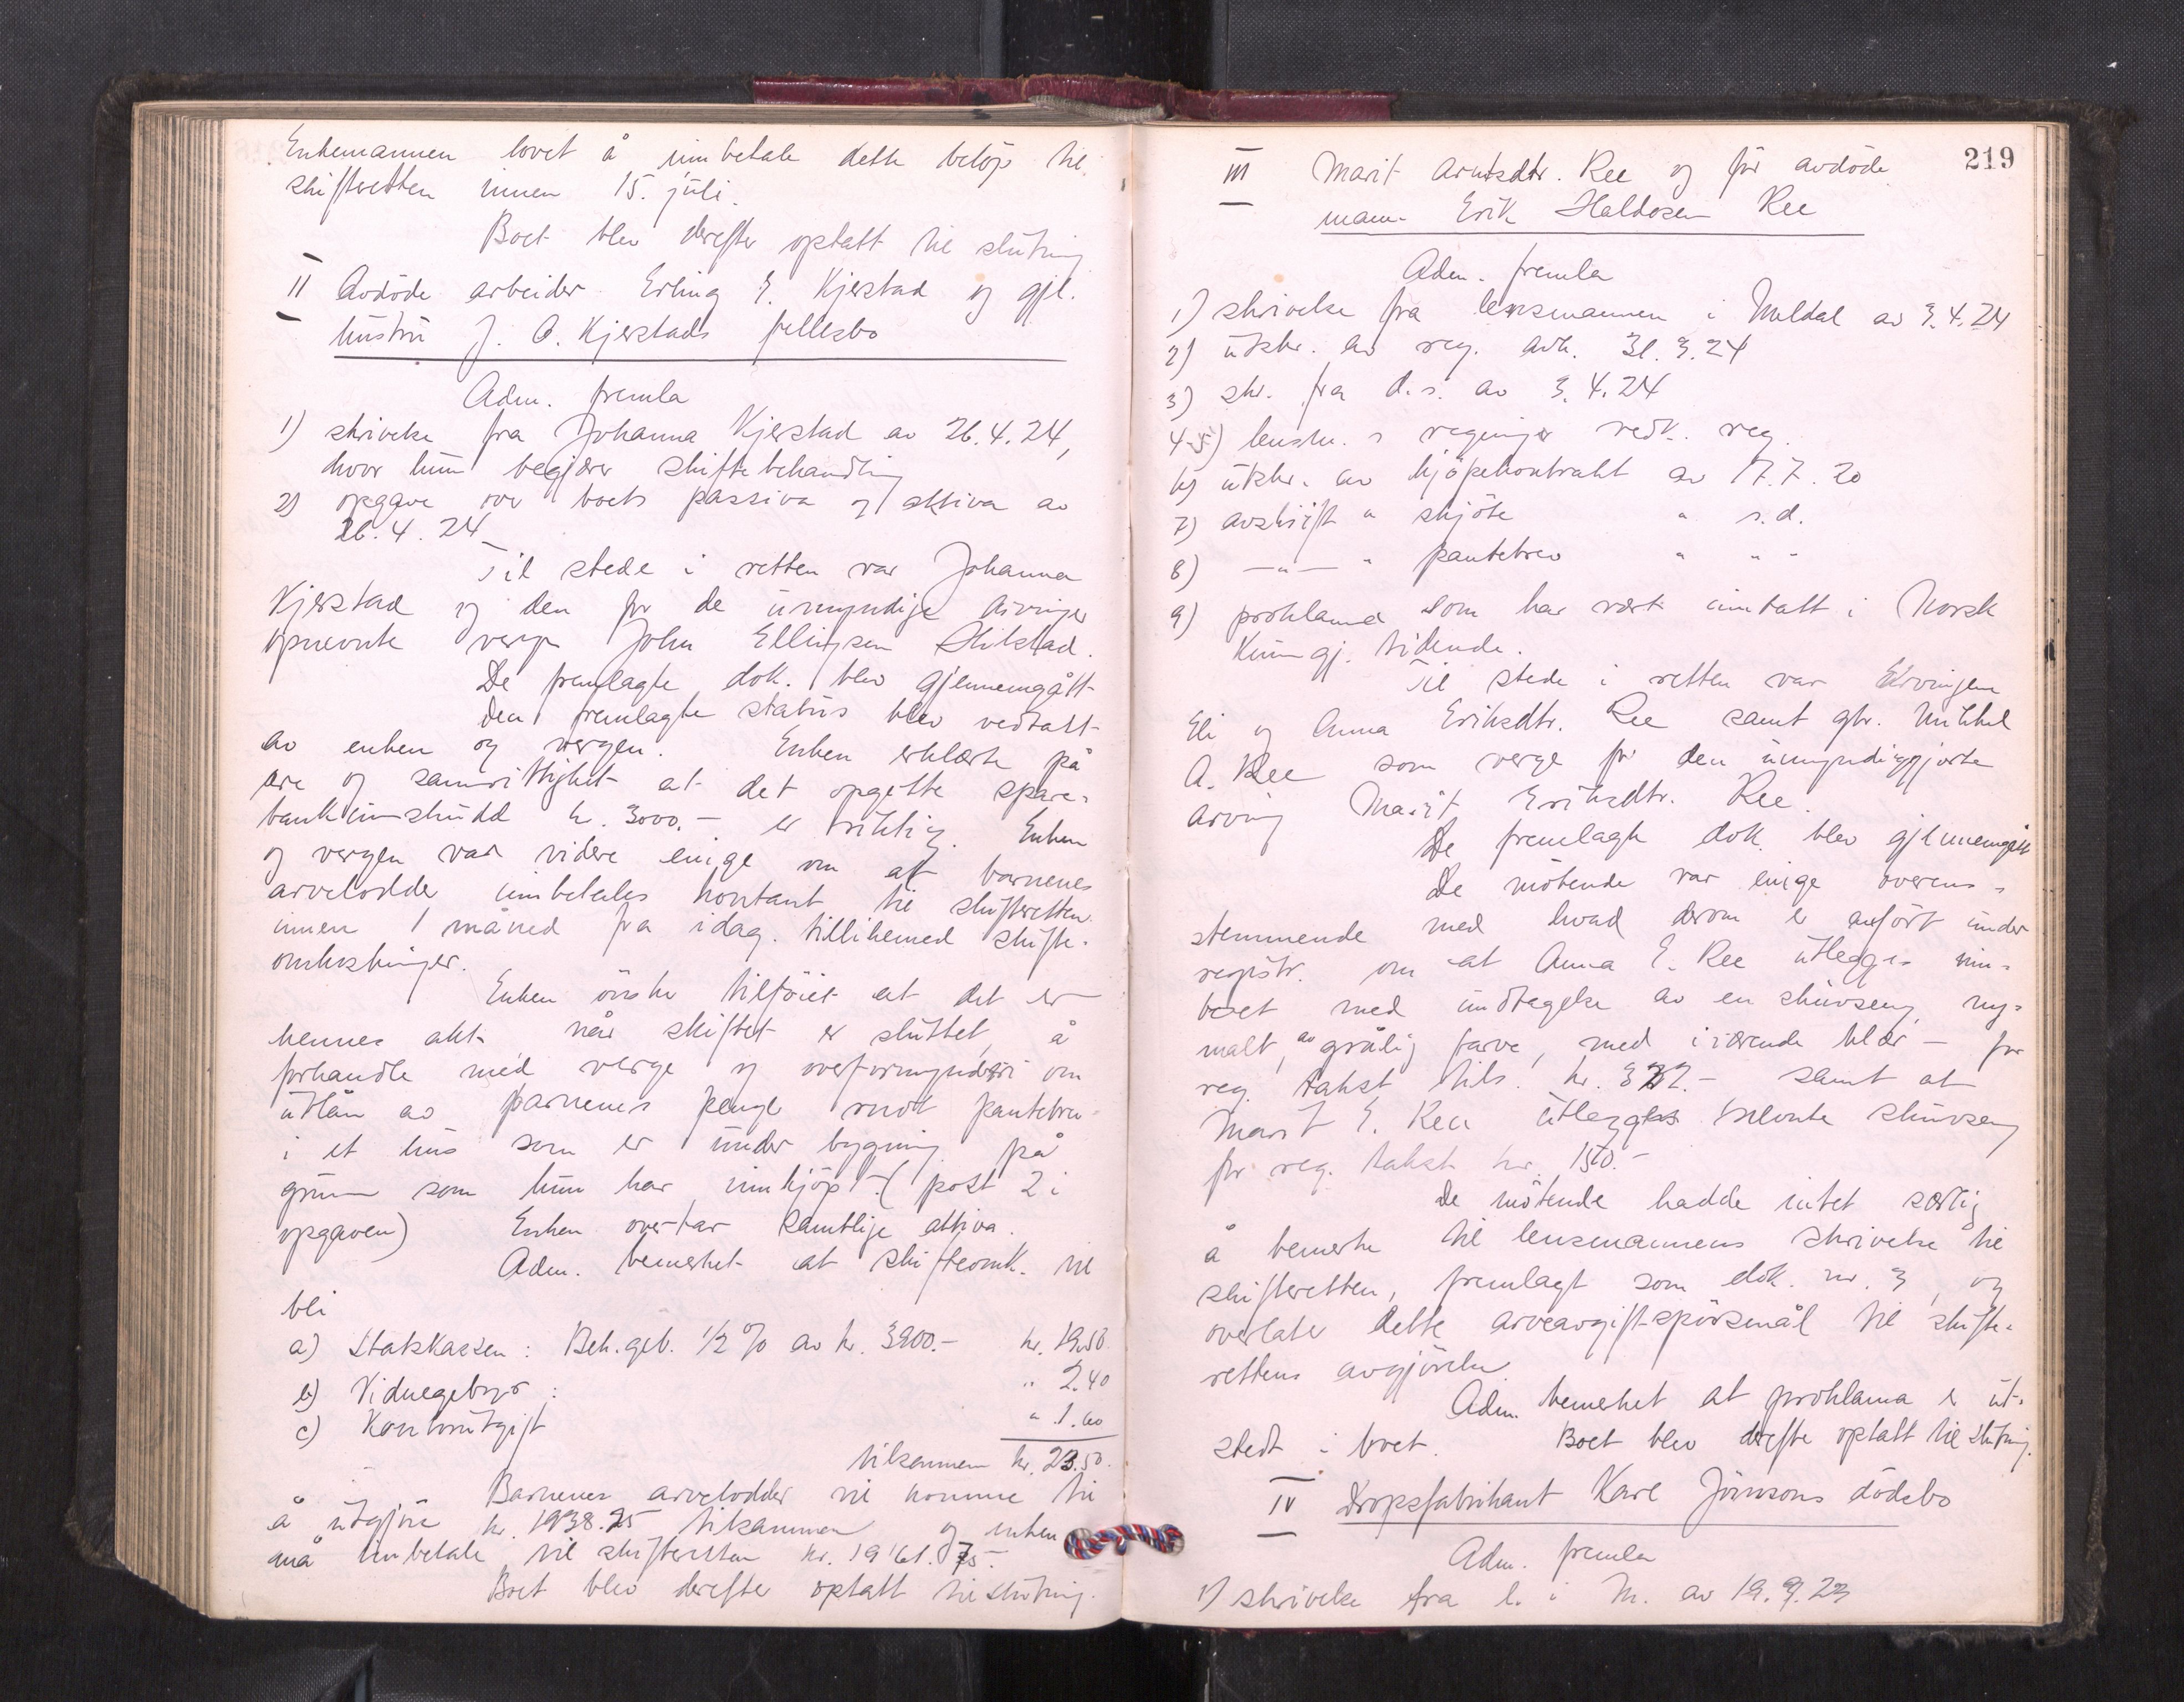 Enkemannen lovet å innbetale dette beløp til
skifteretten innen 15. juli.
Boet blev derefter optatt til slutning
II Avdøde arbeider Erling E. Kjerstad og gjl.
hustru J. O. Kjerstads fellesbo
Adm. fremla
1) skrivelse fra Johanna Kjerstad av 26.4.24,
hvor hun begjærer skiftebehandling
2) opgave over boets passiva og aktiva av
26.4.24
Til stede i retten var Johanna
Kjerstad og den for de umyndige arvinger
opnevnte verge John Ellingsen
De fremlagte dok. blev gjennemgått
Den fremlagte status blev vedtatt
av enken og vergen. Enken erklærte på
ære og samvittighet at det opgitte spare-
bankinnskudd kr. 3000.- er riktig. Enken
og vergen var videre enige om at barnenes
arvelodder innbetales kontant til skifteretten
innen 1 måned fra idag. tillikemed skifte-
omkostninger.
Enken ønsker tilføiet at det er
hennes akt når skiftet er sluttet, å
forhandle med verge og overformynderi om
utlån av barnenes penge mot pantebrev
i et hus som er under bygning på
grunn som hun har innkjøpt (post 2 i
opgaven) Enken overtar samtlige aktiva.
Adm. bemerket at skifteomk. vil
bli
a) Statskassen: Beh.geb. 1/2 % av kr. 3900.- kr. 19.50
b) Vidnegebyr: " 2.40
c) Kontorutgift " 1.60
tilsammen kr. 23.50.
Barnenes arvelodder vil komme til
å utgjøre kr. 1938.25 tilsammen og enken
må innbetale til skifteretten kr. 1961.75.
Boet blev derefter optatt til slutning.
219
III Marit Arntsdtr. Ree og før avdøde
mann Erik Haldosen Ree
Adm. fremla
1) skrivelse fra lensmannen i Meldal av 3.4.24
2) utskr. av reg. avh. 31.3.24
3) skr. fra d.s. av 3.4.24
4-5) lensm. s regninger vedk. reg.
6) utskr. av kjøpekontrakt av 17.7.20
7) avskrift " skjøte " s.d.
8) —"— " pantebrev " " -
9) proklama som har vært inntatt i Norsk
Kunngj. tidende.
Til stede i retten var arvingene
Eli og Anna Eriksdtr. Ree samt gbr. Mikkel
A. Ree som verge for den umyndiggjorte
arving Marit Eriksdtr. Ree.
De fremlagte dok. blev gjennemgått
De møtende var enige overens-
stemmende med hvad derom er anført under
registr. om at Anna E. Ree utlegges inn-
boet med undtagelse av en skuvseng, ny-
malt, av grålig farve, med iværende klær - for
reg. takst tils. kr. 332.- samt at
Marit E. Ree utlegges nevnte skuvseng
for reg. takst kr. 150.-
De møtende hadde intet særlig
å bemerke til lensmannens skrivelse til
skifteretten, fremlagt som dok. nr. 3, og
overlater dette arveavgiftspørsmål til skifte-
rettens avgjørelse.
Adm. bemerket at proklama er ut-
stedt i boet. Boet blev derefter optatt til slutning.
IV Dropsfabrikant Karl Jönssons dødsbo
Adm. fremla
1) skrivelse fra l. i M. av 19.9.23